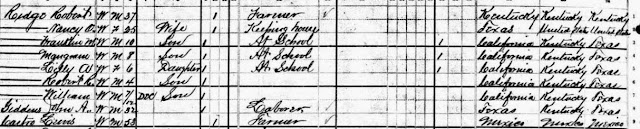 Ridge Robert W M 37 1 Farmer Kentucky Kentucky Kentucky
— Nancy W F 25 Wife 1 Keeping house Texas United States United States
— Franklin M. W M 10 Son 1 At School 1 California Kentucky Texas
— Mangrum W M 8 Son 1 At School 1 California Kentucky Texas
— W F 6 Daughter 1 At School 1 California Kentucky Texas
— Robert W M 4 Son 1 California Kentucky Texas
— William W M 7/12 Dec Son 1 California Kentucky Texas
Giddens A. W M 32 1 Laborer Texas Kentucky Kentucky
Castro Luis W M 53 1 Farmer Mexico Mexico Mexico